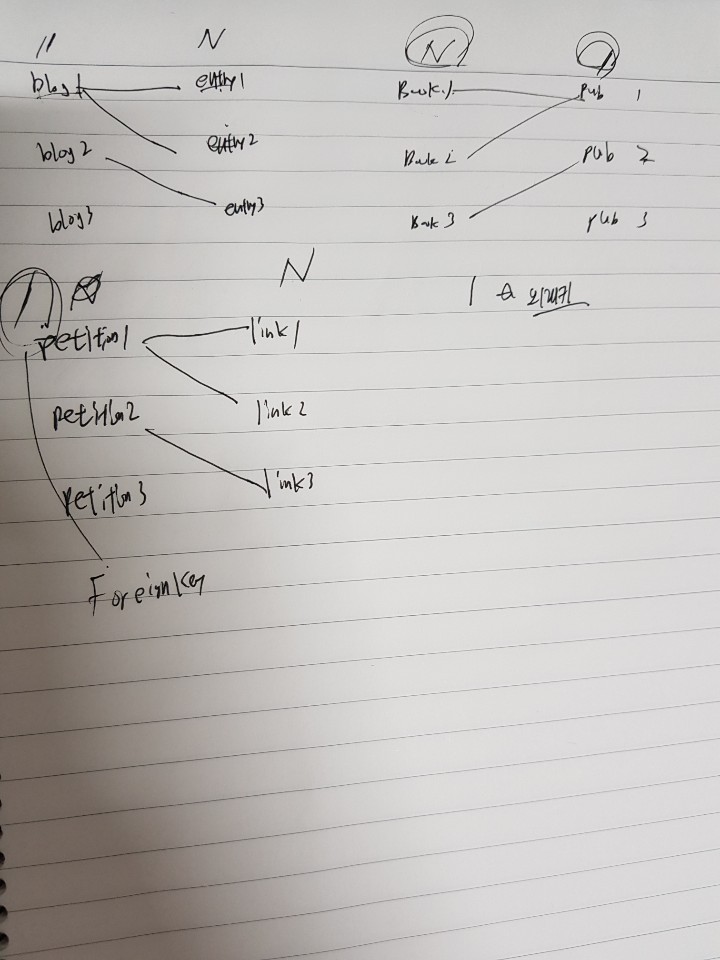 1 N
blog1 entry1
blog2 entry2
blog3 entry3
N 1
Book1 pub 1
Book 2 pub 2
Book 3 pub 3
1 N
petition1 link1
petition2 link2
petition3 link3
ForeignKey
1